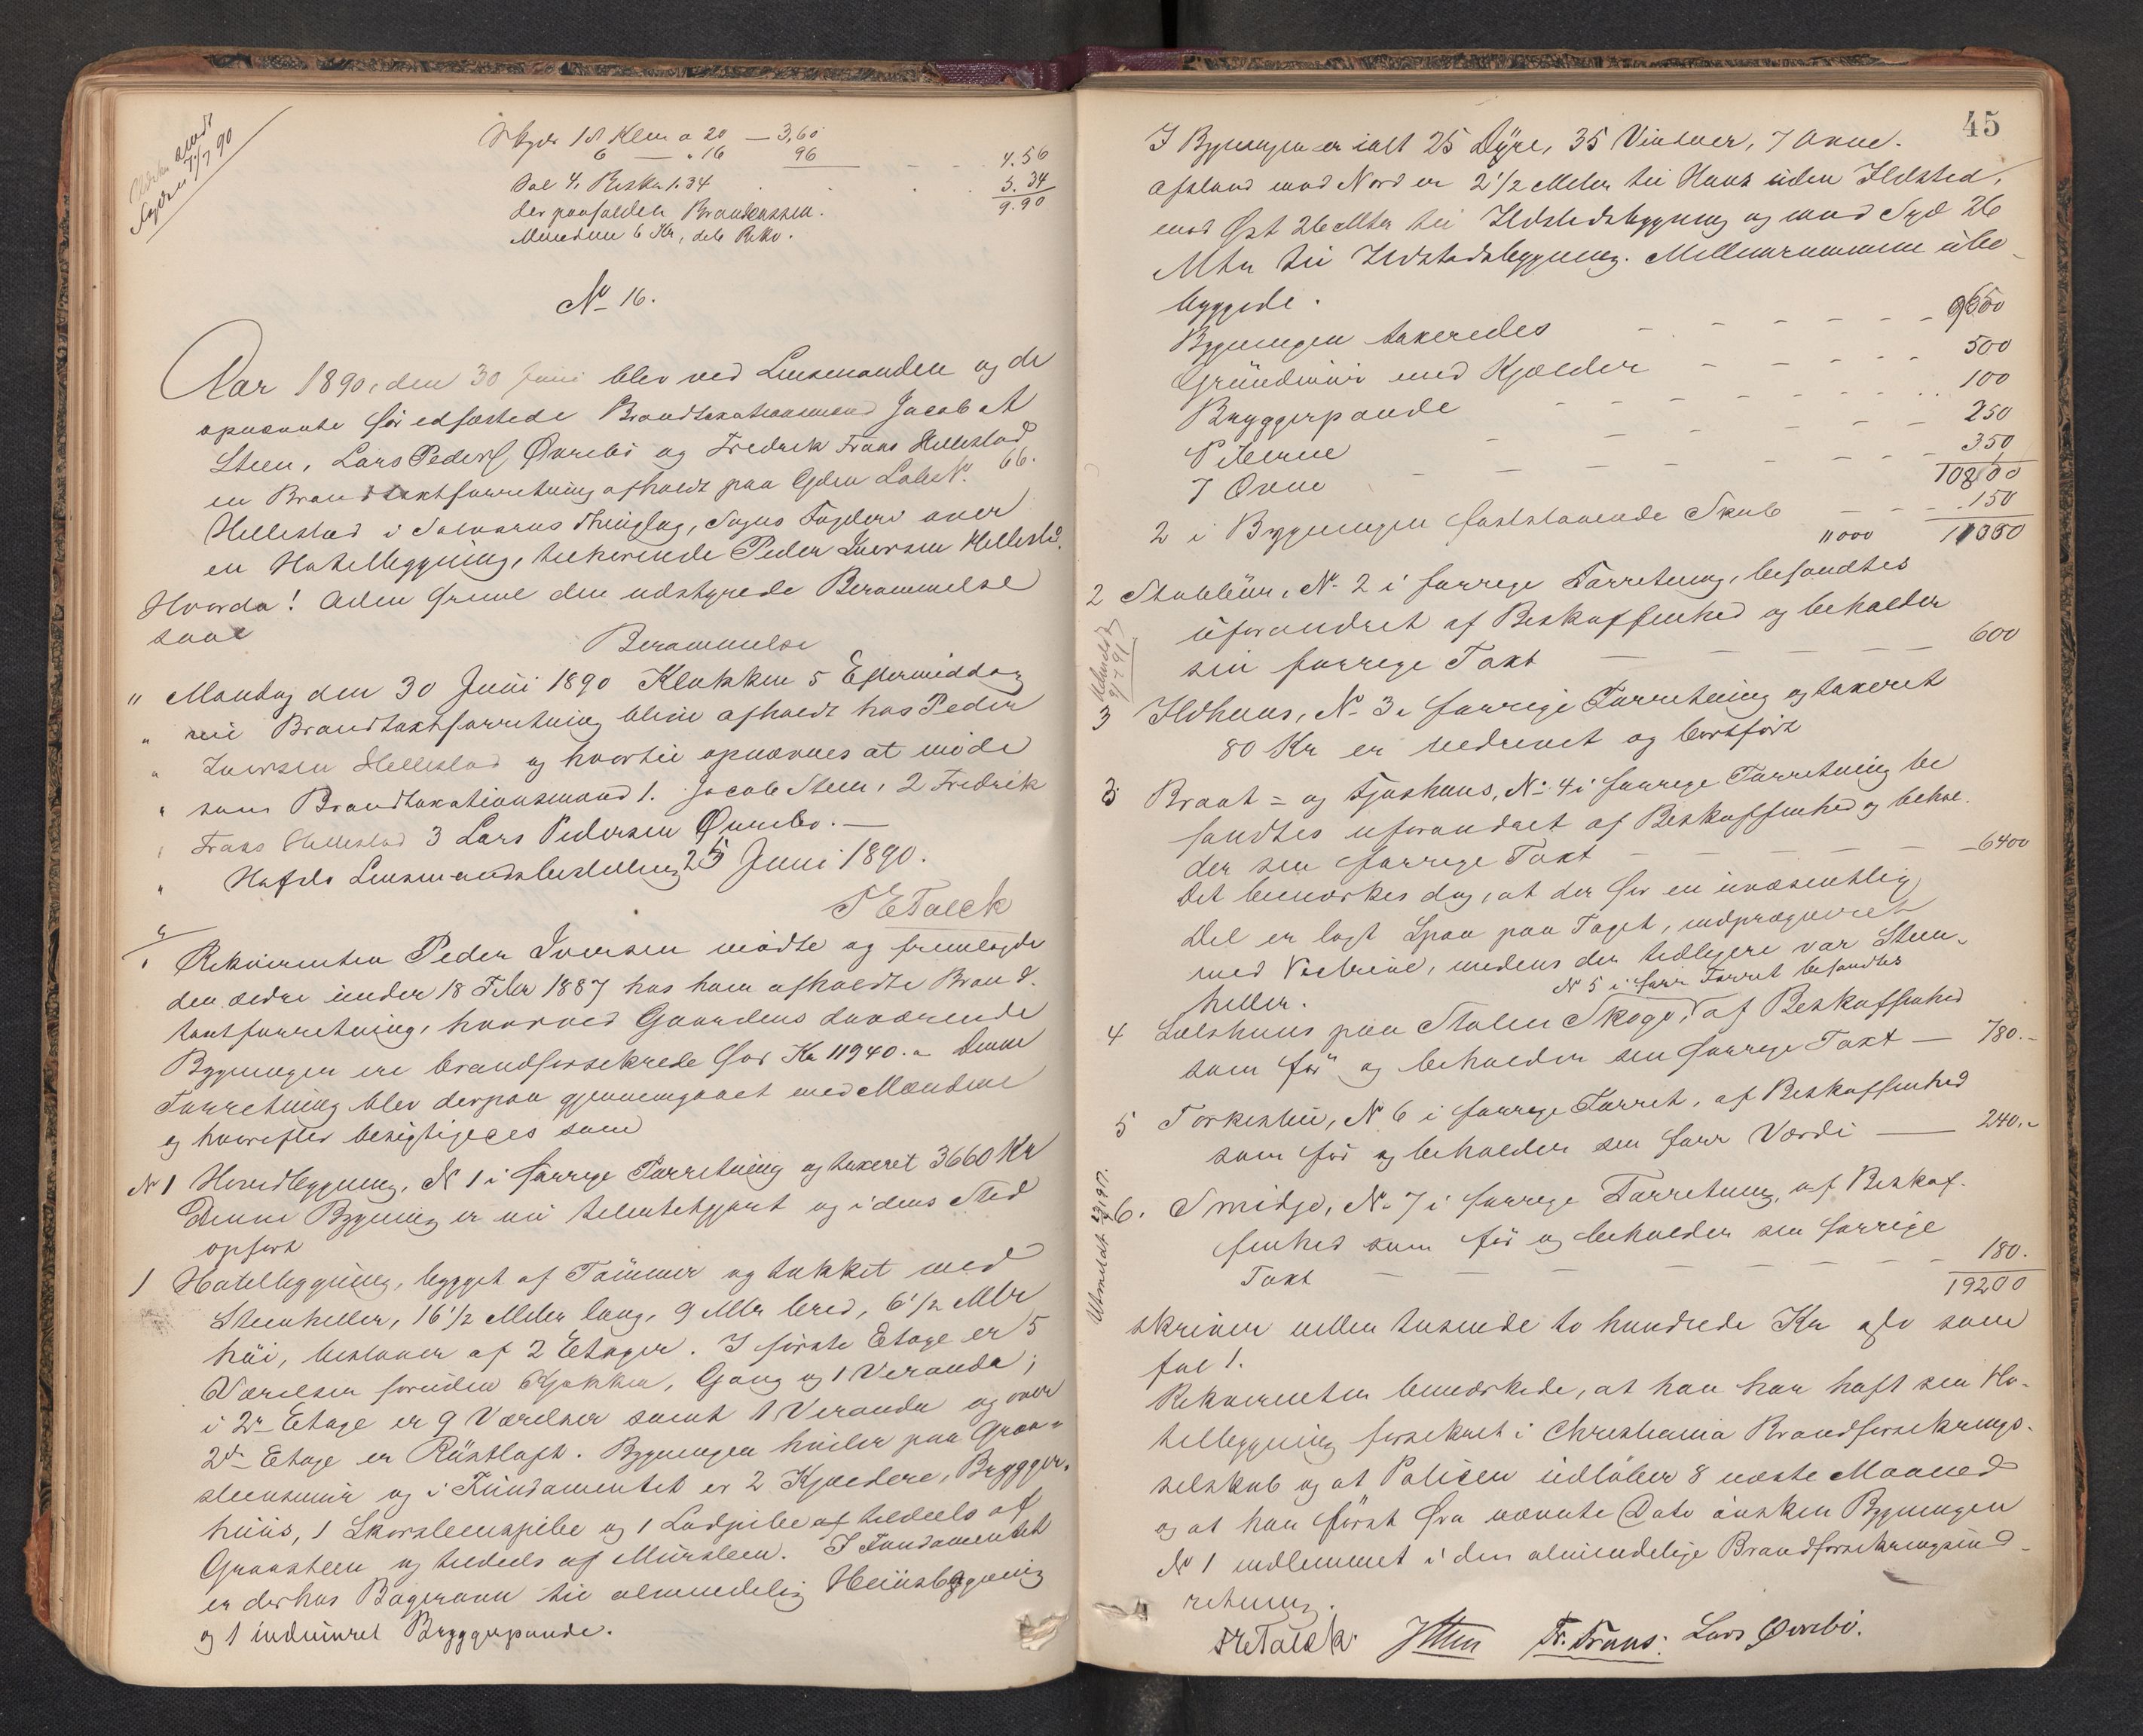 Skyds 18 Klm a 20 — 3,60
6 — " 16 96 4.56
Sal 4, Reska 1.34 5.34
9.90
der paafalder Brandkassen.
Mændene 6 Kr, dels Rekv.
No 16.
Aar 1890, den 30 Juni blev ved Lensmanden og de
opnævnte før edfæstede Brandtaxationsmænd Jacob A
Steen, Lars Peders. Øvrebø og Fredrik Frans Hellestad
en Brandtaxtforretning afholdt paa Gden Løbe N. 66.
Hellestad i Solvorns Thinglag, Sogns Fogderi over
en Hotelbygning, tilhørende Peder Iversen Hellestad.
Hvorda! Aden frem den udstyrede Berammelse
saae
Berammelse
" Mandag den 30 Juni 1890 Klokken 5 Eftermiddag
" vil Brandtaxtforretning blive afholdt hos Peder
" Iversen Hellestad og hvortil opnævnes at møde
" som Brandtaxationsmænd 1. Jacob Steen, 2 Fredrik
" Frans Hellestad 3 Lars Pedersen Øvrebø. —
" Hafslo Lensmandsbestilling 25 Juni 1890.
T E Falck
Rekvirenten Peder Iversen mødte og fremlagde
den ældre under 18 Febr 1887 hos ham afholdte Brand-
taxtforretning, hvorved Gaardens daværende
Bygninger ere brandforsikrede for Kr 11940.- Denne
Forretning blev derpaa gjennemgaaet med Mændene
og hvorefter besigtigedes som
No 1 Hovedbygning, N 1 i forrige Forretning og taxeret 3660 Kr
Denne Bygning er nu tilintetgjort og i dens Sted
opført
1 Hotelbygning, bygget af Tømmer og tækket med
Steenheller, 16 1/2 Meter lang, 9 Mtr bred, 6 1/2 Mtr
høi, bestaaer af 2 Etager. I første Etage er 5
Værelser foruden Kjøkken, Gang og 1 Veranda;
i 2den Etage er 9 Værelser samt 1 Veranda og over
2den Etage er Røstloft. Bygningen hviler paa Graa-
steensmur og i Fundamentet er 2 Kjældere, Brygger-
huus, 1 Skorsteenspibe og 1 Ladpibe af tildeels af
Graasteen og tildeels af Mursteen. I Fundamentet
er derhos Bagerovn til almindelig Huusbrygning
og 1 indmuret Bryggepande.
45
I Bygningen er ialt 25 Døre, 35 Vinduer, 7 Ovne.
Afstand mod Nord er 2 1/2 Meter til Huus uden Ildsted,
mod Øst 26 Mtr til Ildstedsbygning og mod Syd 26
Mtr til Ildstedsbygning. Mellemrummene ube-
byggede.
Bygningen taxeredes — 9600
Grundmuur med Kjælder — 500
Bryggerpande — 100
Piberne — 250
7 Ovne — 350
10800
2 i Bygningen faststaaende Skab — 150
11000 11350
2 Stabbuur, N. 2 i forrige Forretning, befandtes
uforandret af Beskaffenhed og beholder
sin forrige Taxt — 600
3 Ildhuus, N. 3 i forrige Forretning og taxeret
80 Kr er nedrevet og bortført
3 Braat- og Fjøshuus, N. 4 i forrige Forretning be
fandtes uforandret af Beskaffenhed og behol-
der sin forrige Taxt — 6400
Det bemærkes dog, at der for en uvæsentlig
Del er lagt Spaan paa Taget, indprægneret
med Vitriol, medens der tidligere var Steen-
heller.
4 Sælshuus paa Stølen Skogø, N 5 i forr Forret befandtes af Beskaffenhed
som før og beholder sin forrige Taxt — 780.-
5 Torkestue, N 6 i forrige Forret, af Beskaffenhed
som før og beholder sin forr Værdi — 240.-
6. Smidje, N. 7 i forrige Forretning, af Beskaf-
fenhed som før og beholder sin forrige
Taxt — 180.
19200
skriver nitten tusende to hundrede Kr og lo som
fal 1.
Rekvirenten bemærkede, at han har haft sin Ho-
telbygning forsikret i Christiania Brandforsikrings-
selskab og at Policen udløber 8 næste Maaned
og at han først fra nævnte Dato ønsker Bygningen
N 1 indlemmet i den almindelige Brandforsikringsind-
retning.
T E Falck. JSteen Fr. Frans. Lars Øvrebø.